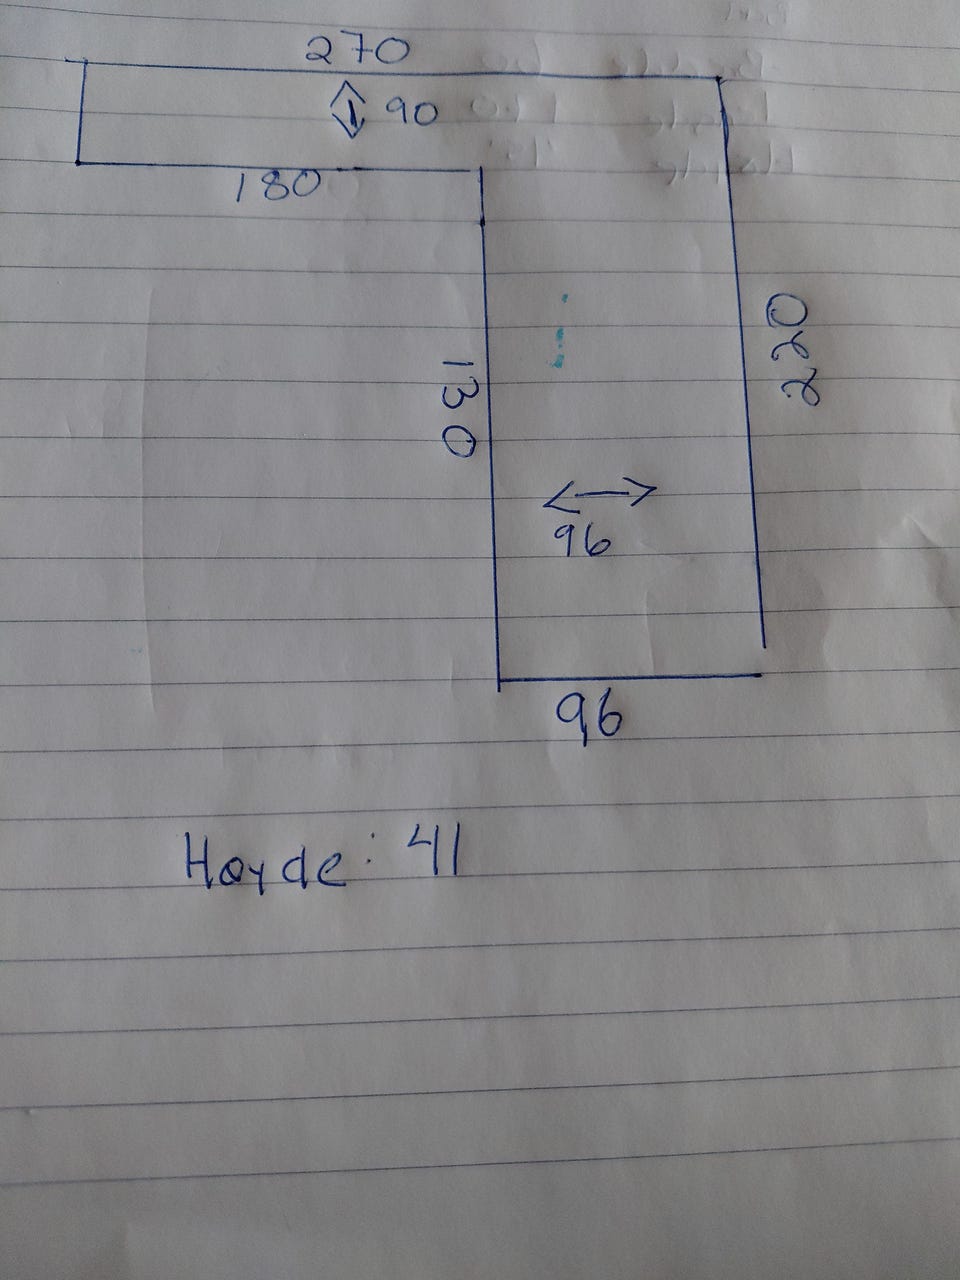 270
90
180
220
130
96
96
Hoyde: 41